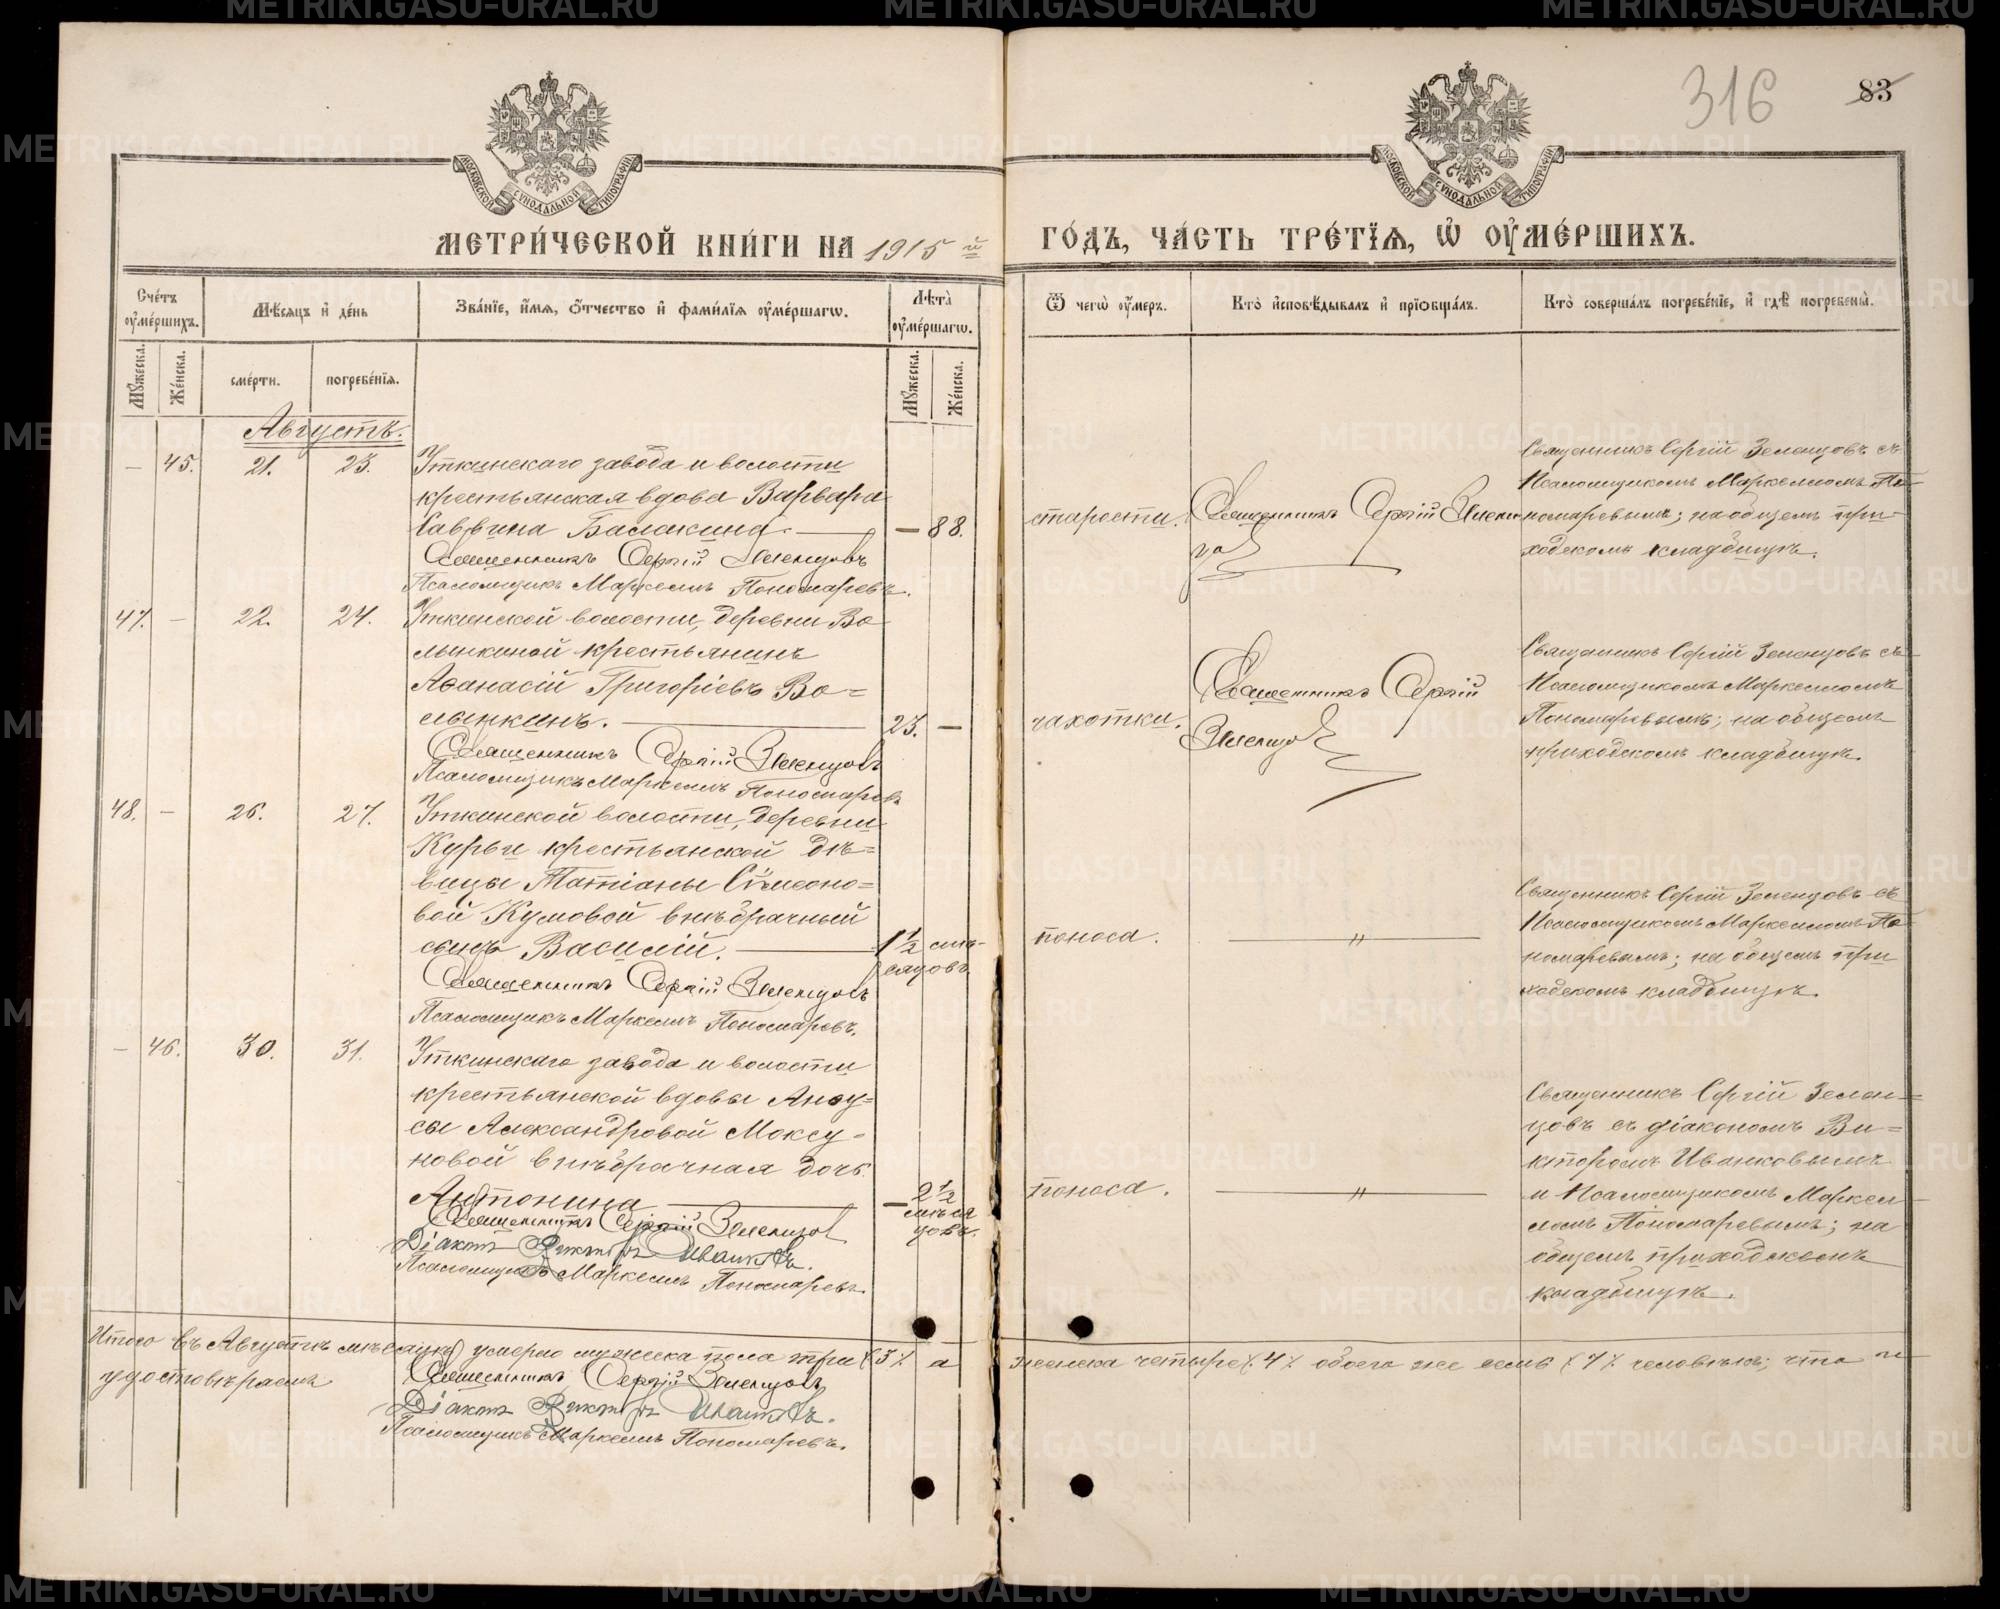 METRIKI.GASO-URAL.RU
316
83
МОСКОВСКОЙ СУНОДАЛЬНОЙ ТИПОГРАФІИ
МОСКОВСКОЙ СУНОДАЛЬНОЙ ТИПОГРАФІИ
МЕТРИ́ЧЕСКОЙ КНИ́ГИ НА 1915й
ГО́ДЪ, ЧА́СТЬ ТРЕ́ТЇЯ, Ѡ҆ ОУ҆МЕ́РШИХЪ.
Сче́тъ оу҆ме́ршихъ.
Мѣ́сяцъ и҆ де́нь
Зва́нїе, и҆́мя, ѻ҆́тчество и҆ фами́лїя оу҆ме́ршагѡ.
Лѣ́та оу҆ме́ршагѡ.
Ѿ чегѡ̀ оу҆́меръ.
Кто̀ и҆сповѣ́дывалъ и҆ прїѡбща́лъ.
Кто̀ соверша́лъ погребе́нїе, и҆ гдѣ̀ погребены̀.
Мꙋ́жеска.
Же́нска.
сме́рти.
погребе́нїя.
Мꙋ́жеска.
Же́нска.
Августъ.
— 45. 21. 23. Уткинскаго завода и волости
крестьянская вдова Варвара
Саввина Балакина. — 88.
Священникъ Сергій Зеленцовъ
Псаломщикъ Маркеллъ Пономаревъ.
старости.
Священникъ Сергій Зелен
цо
Священникъ Сергій Зеленцовъ съ
Псаломщикомъ Маркелломъ По-
номаревымъ; на общемъ при-
ходскомъ кладбищѣ.
47. — 22. 24. Уткинской волости, деревни Во
лынкиной крестьянинъ
Аѳанасій Григоріевъ Во=
лынкинъ. 23. —
Священникъ Сергій Зеленцовъ
Псаломщикъ Маркеллъ Пономаревъ
чахотки.
Священникъ Сергій
Зеленцо
Священникъ Сергій Зеленцовъ съ
Псаломщикомъ Маркелломъ
Пономаревымъ; на общемъ
приходскомъ кладбищѣ.
48. — 26. 27. Уткинской волости, деревни
Курьи крестьянской дѣ=
вицы Татіаны Сѵмеоно=
вой Кумовой внѣбрачный
сынъ Василій. 1½ мѣ-
сяцовъ
Священникъ Сергій Зеленцовъ
Псаломщикъ Маркеллъ Пономаревъ.
поноса.
— " —
Священникъ Сергій Зеленцовъ съ
Псаломщикомъ Маркелломъ По-
номаревымъ; на общемъ при
ходскомъ кладбищѣ.
— 46. 30. 31. Уткинскаго завода и волости
крестьянской вдовы Анѳу=
сы Александровой Моксу-
новой внѣбрачная дочь
Антонина — 2½
мѣся
цовъ.
Священникъ Сергій Зеленцов
Діаконъ Викторъ Иванковъ.
Псаломщикъ Маркеллъ Пономаревъ.
поноса.
— " —
Священникъ Сергій Зелен=
цовъ съ діакономъ Ви=
кторомъ Иванковымъ
и Псаломщикомъ Маркел-
ломъ Пономаревымъ; на
общемъ приходскомъ
кладбищѣ.
Итого въ Августѣ мѣсяцѣ умерло мужска пола три (3) а женска четыре (4) обоего же семь (7) человѣкъ; что и
удостовѣряемъ
Священникъ Сергій Зеленцовъ
Діаконъ Викторъ Иванковъ.
Псаломщикъ Маркеллъ Пономаревъ.